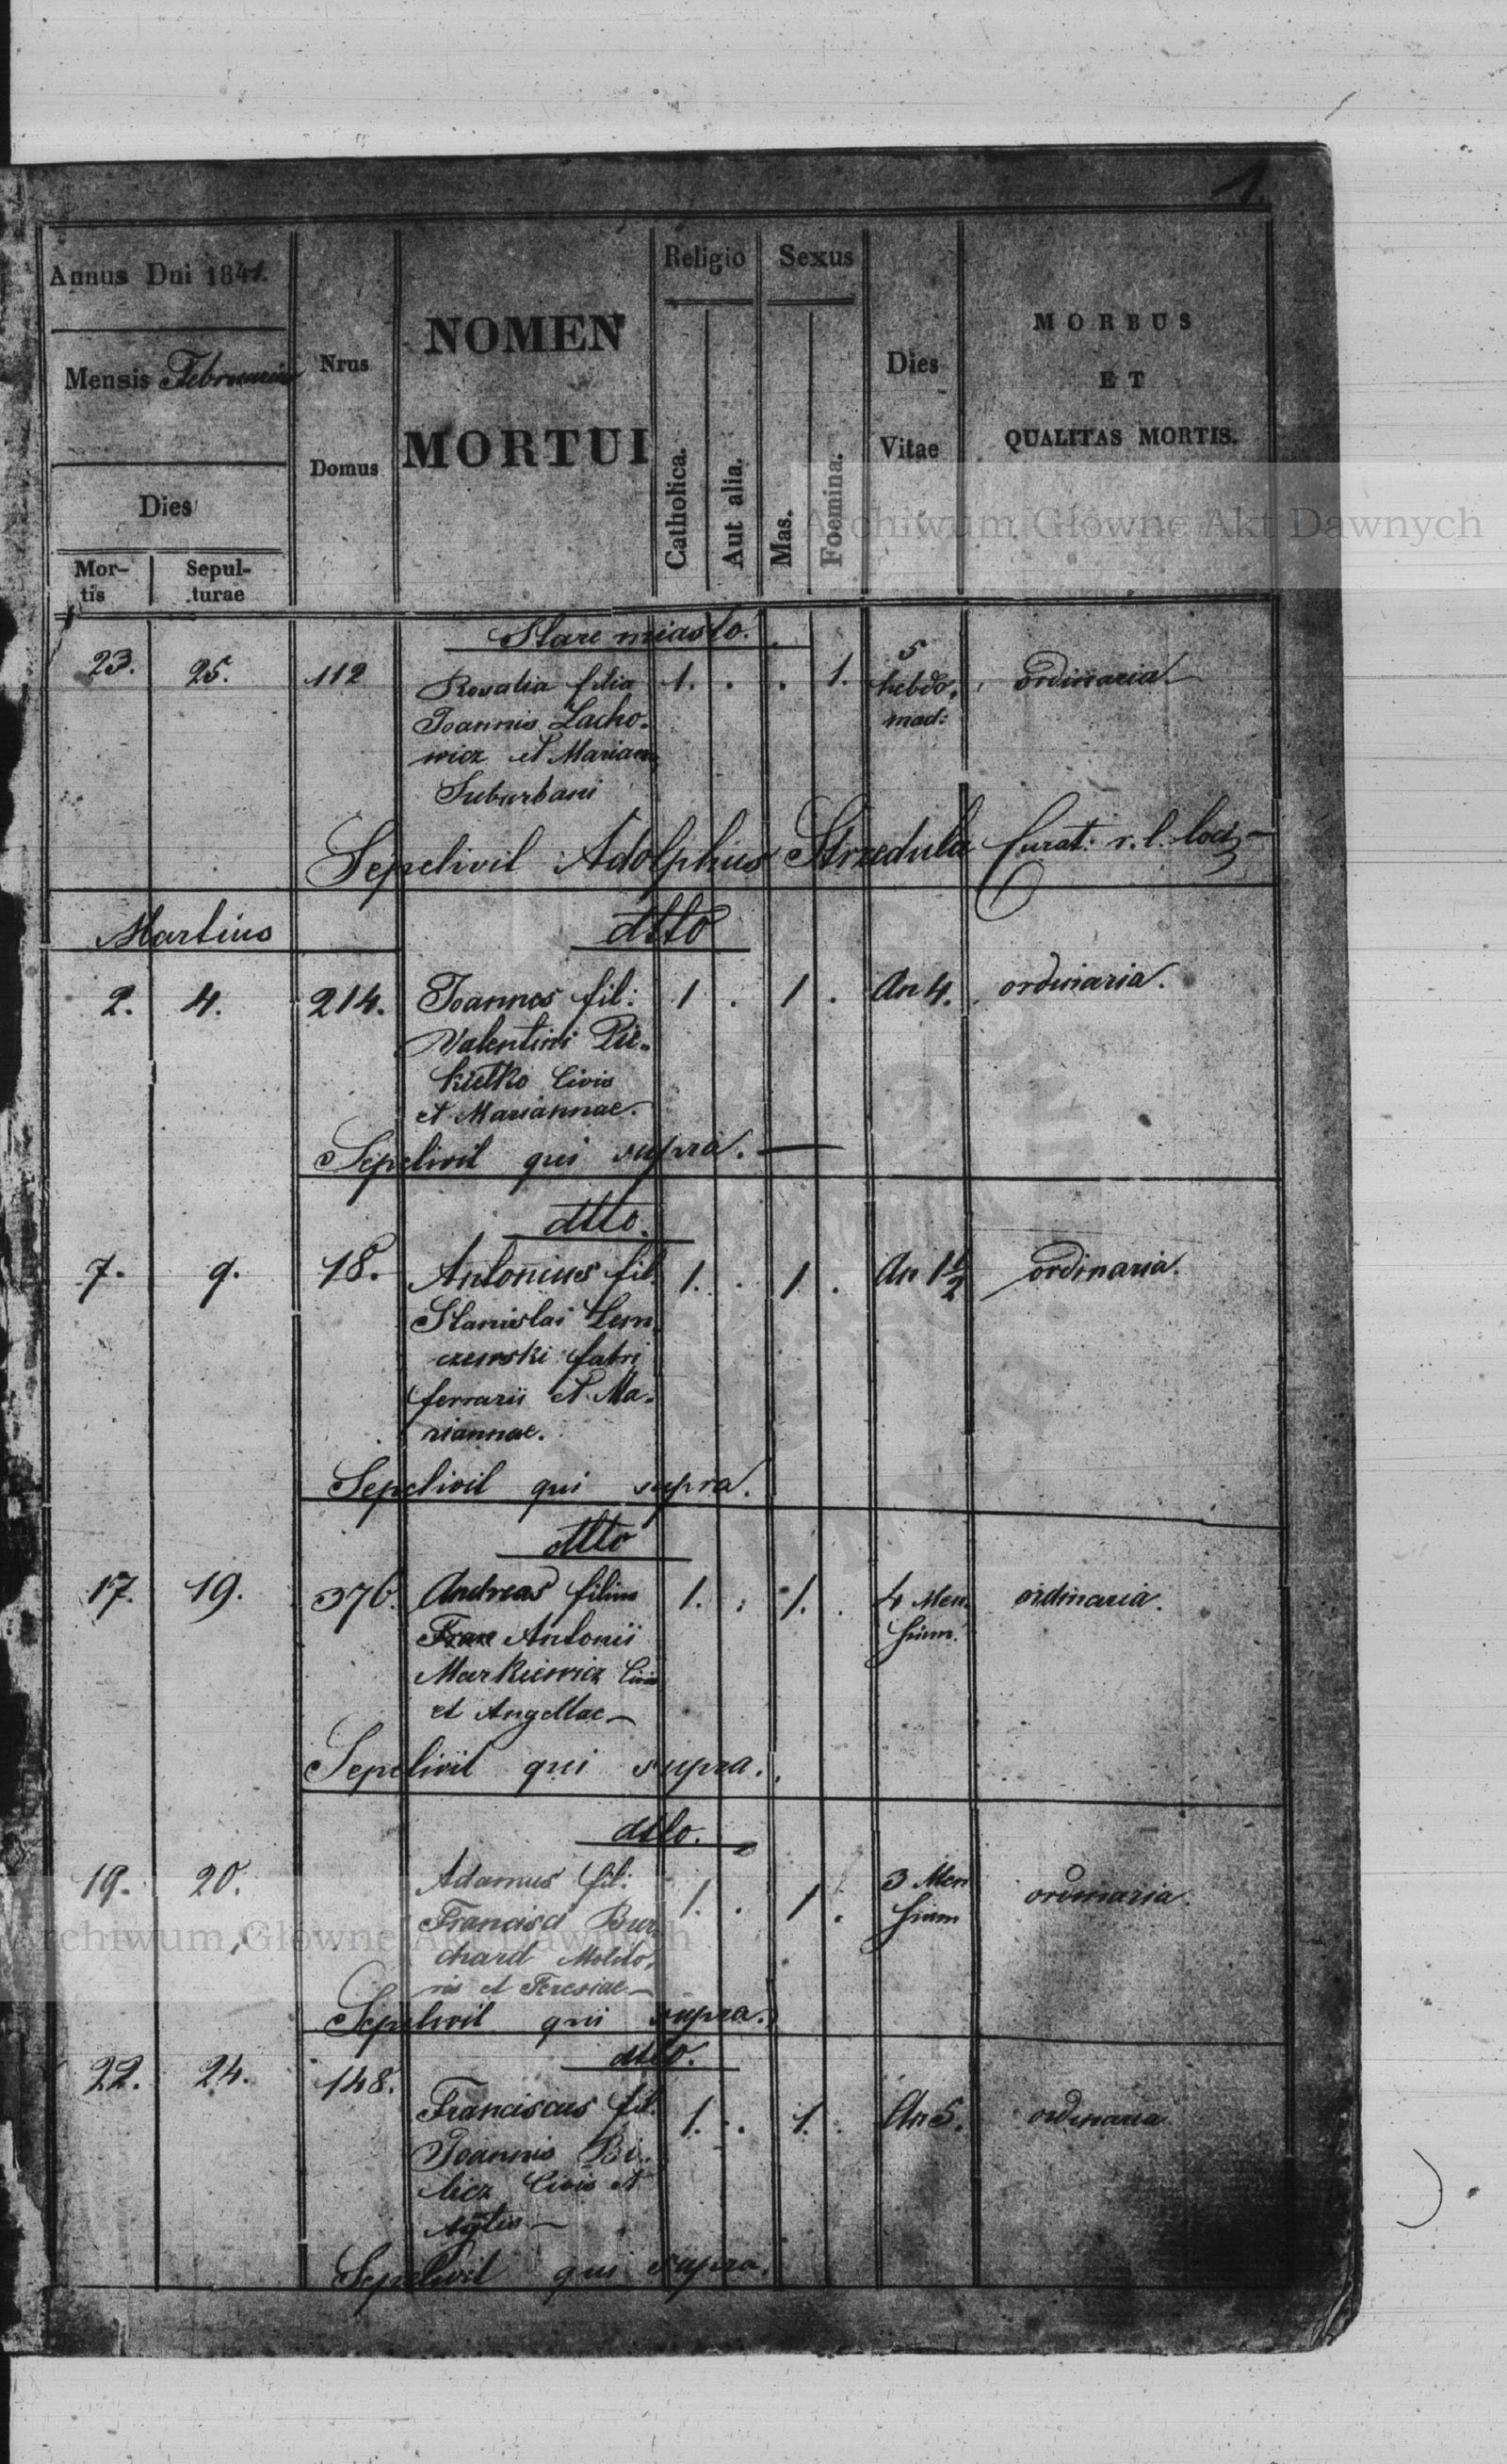 1.
Annus Dni 1841.
Mensis Februarius
Dies
Mor-
tis
Sepul-
turae
Nrus
Domus
NOMEN
MORTUI
Religio
Catholica.
Aut alia.
Sexus
Mas.
Foemina.
Dies
Vitae
MORBUS
ET
QUALITAS MORTIS.
Archiwum Główne Akt Dawnych
Stare miasto.
23. 25. 112 Rosalia filia 1. . . 1. 5 ordinaria
Joannis Lacho- hebdo-
wicz et Mariann mad:
Suburbani
Sepelivit Adolphus Strzedula Curat. r. l. loci
Martius dtto
2. 4. 214. Joannes fil: 1 . 1 . An 4. ordinaria.
Valentini Pie-
kielko Civis
et Mariannae.
Sepelivit qui supra.
dtto.
7. 9. 18. Antonius fil. 1. . 1. An 1½ ordinaria.
Stanislai Lem-
czewski fabri
ferrarii et Ma-
riannae.
Sepelivit qui supra.
dtto
17. 19. 376. Andreas filius 1. . 1. . 4 Men- ordinaria.
Antonii sium.
Markiewicz Civis
et Angellae
Sepelivit qui supra.
dtto.
19. 20. Adamus fil. 1. . 1 . 3 Men ordinaria.
Francisci Bur- sium
chard Molito-
ris et Teresiae
Archiwum Główne Akt Dawnych
Sepelivit qui supra.
dtto.
22. 24. 148. Franciscus fil. 1. . 1. An 5. ordinaria
Joannis Bi-
licz Civis et
Sepelivit qui supra.